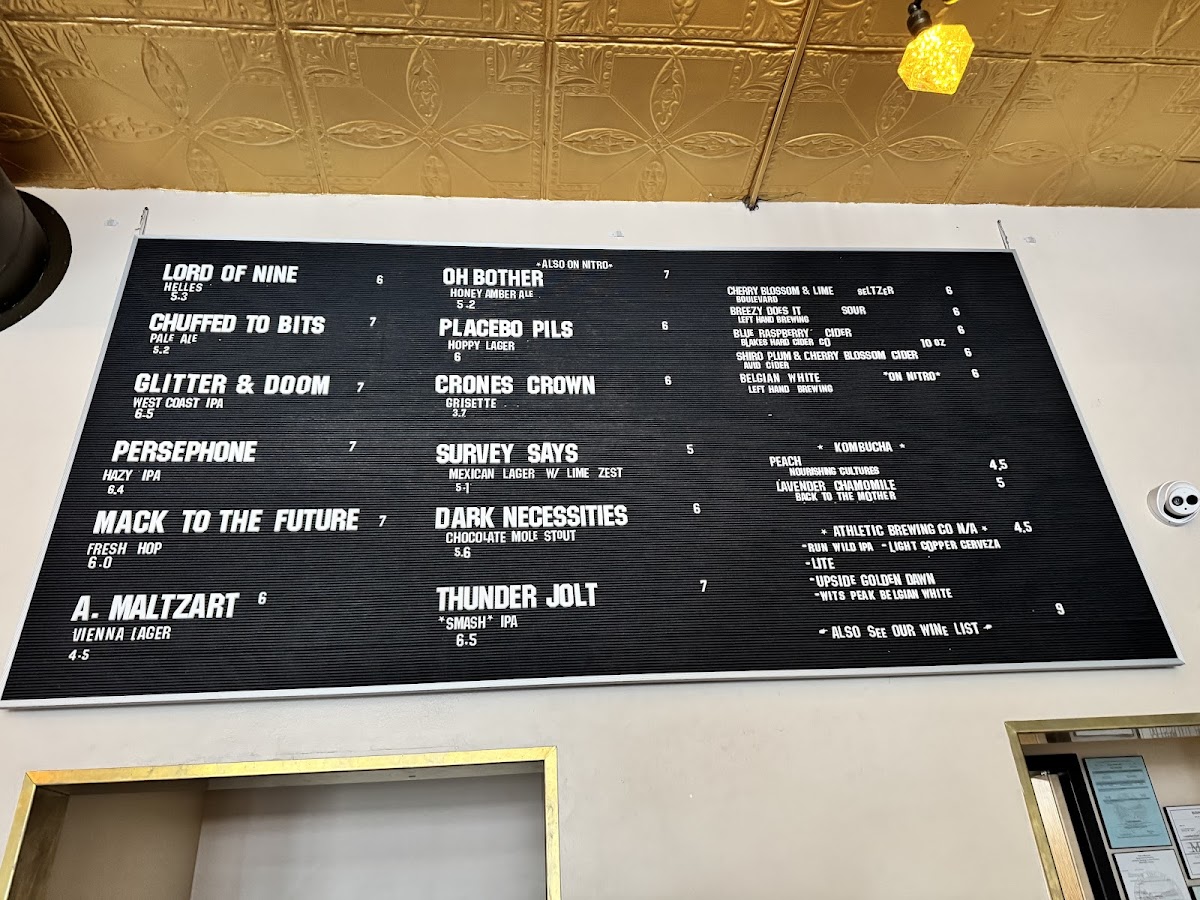 LORD OF NINE 6
HELLES
5.3
CHUFFED TO BITS 7
PALE ALE
5.2
GLITTER & DOOM 7
WEST COAST IPA
6.5
PERSEPHONE 7
HAZY IPA
6.4
MACK TO THE FUTURE 7
FRESH HOP
6.0
A. MALTZART 6
VIENNA LAGER
4.5
*ALSO ON NITRO*
OH BOTHER 7
HONEY AMBER ALE
5.2
PLACEBO PILS 6
HOPPY LAGER
6
CRONES CROWN 6
GRISETTE
3.7
SURVEY SAYS 5
MEXICAN LAGER W/ LIME ZEST
5.1
DARK NECESSITIES 6
CHOCOLATE MOLE STOUT
5.6
THUNDER JOLT 7
*SMASH* IPA
6.5
CHERRY BLOSSOM & LIME SELTZER 6
BOULEVARD
BREEZY DOES IT SOUR 6
LEFT HAND BREWING
BLUE RASPBERRY CIDER 6
BLAKES HARD CIDER CO 10 OZ
SHIRO PLUM & CHERRY BLOSSOM CIDER 6
AVID CIDER
BELGIAN WHITE *ON NITRO* 6
LEFT HAND BREWING
* KOMBUCHA *
PEACH 4,5
NOURISHING CULTURES
LAVENDER CHAMOMILE 5
BACK TO THE MOTHER
* ATHLETIC BREWING CO N/A * 4,5
-RUN WILD IPA -LIGHT COPPER CERVEZA
-LITE
-UPSIDE GOLDEN DAWN
-WITS PEAK BELGIAN WHITE
9
ALSO SEE OUR WINE LIST